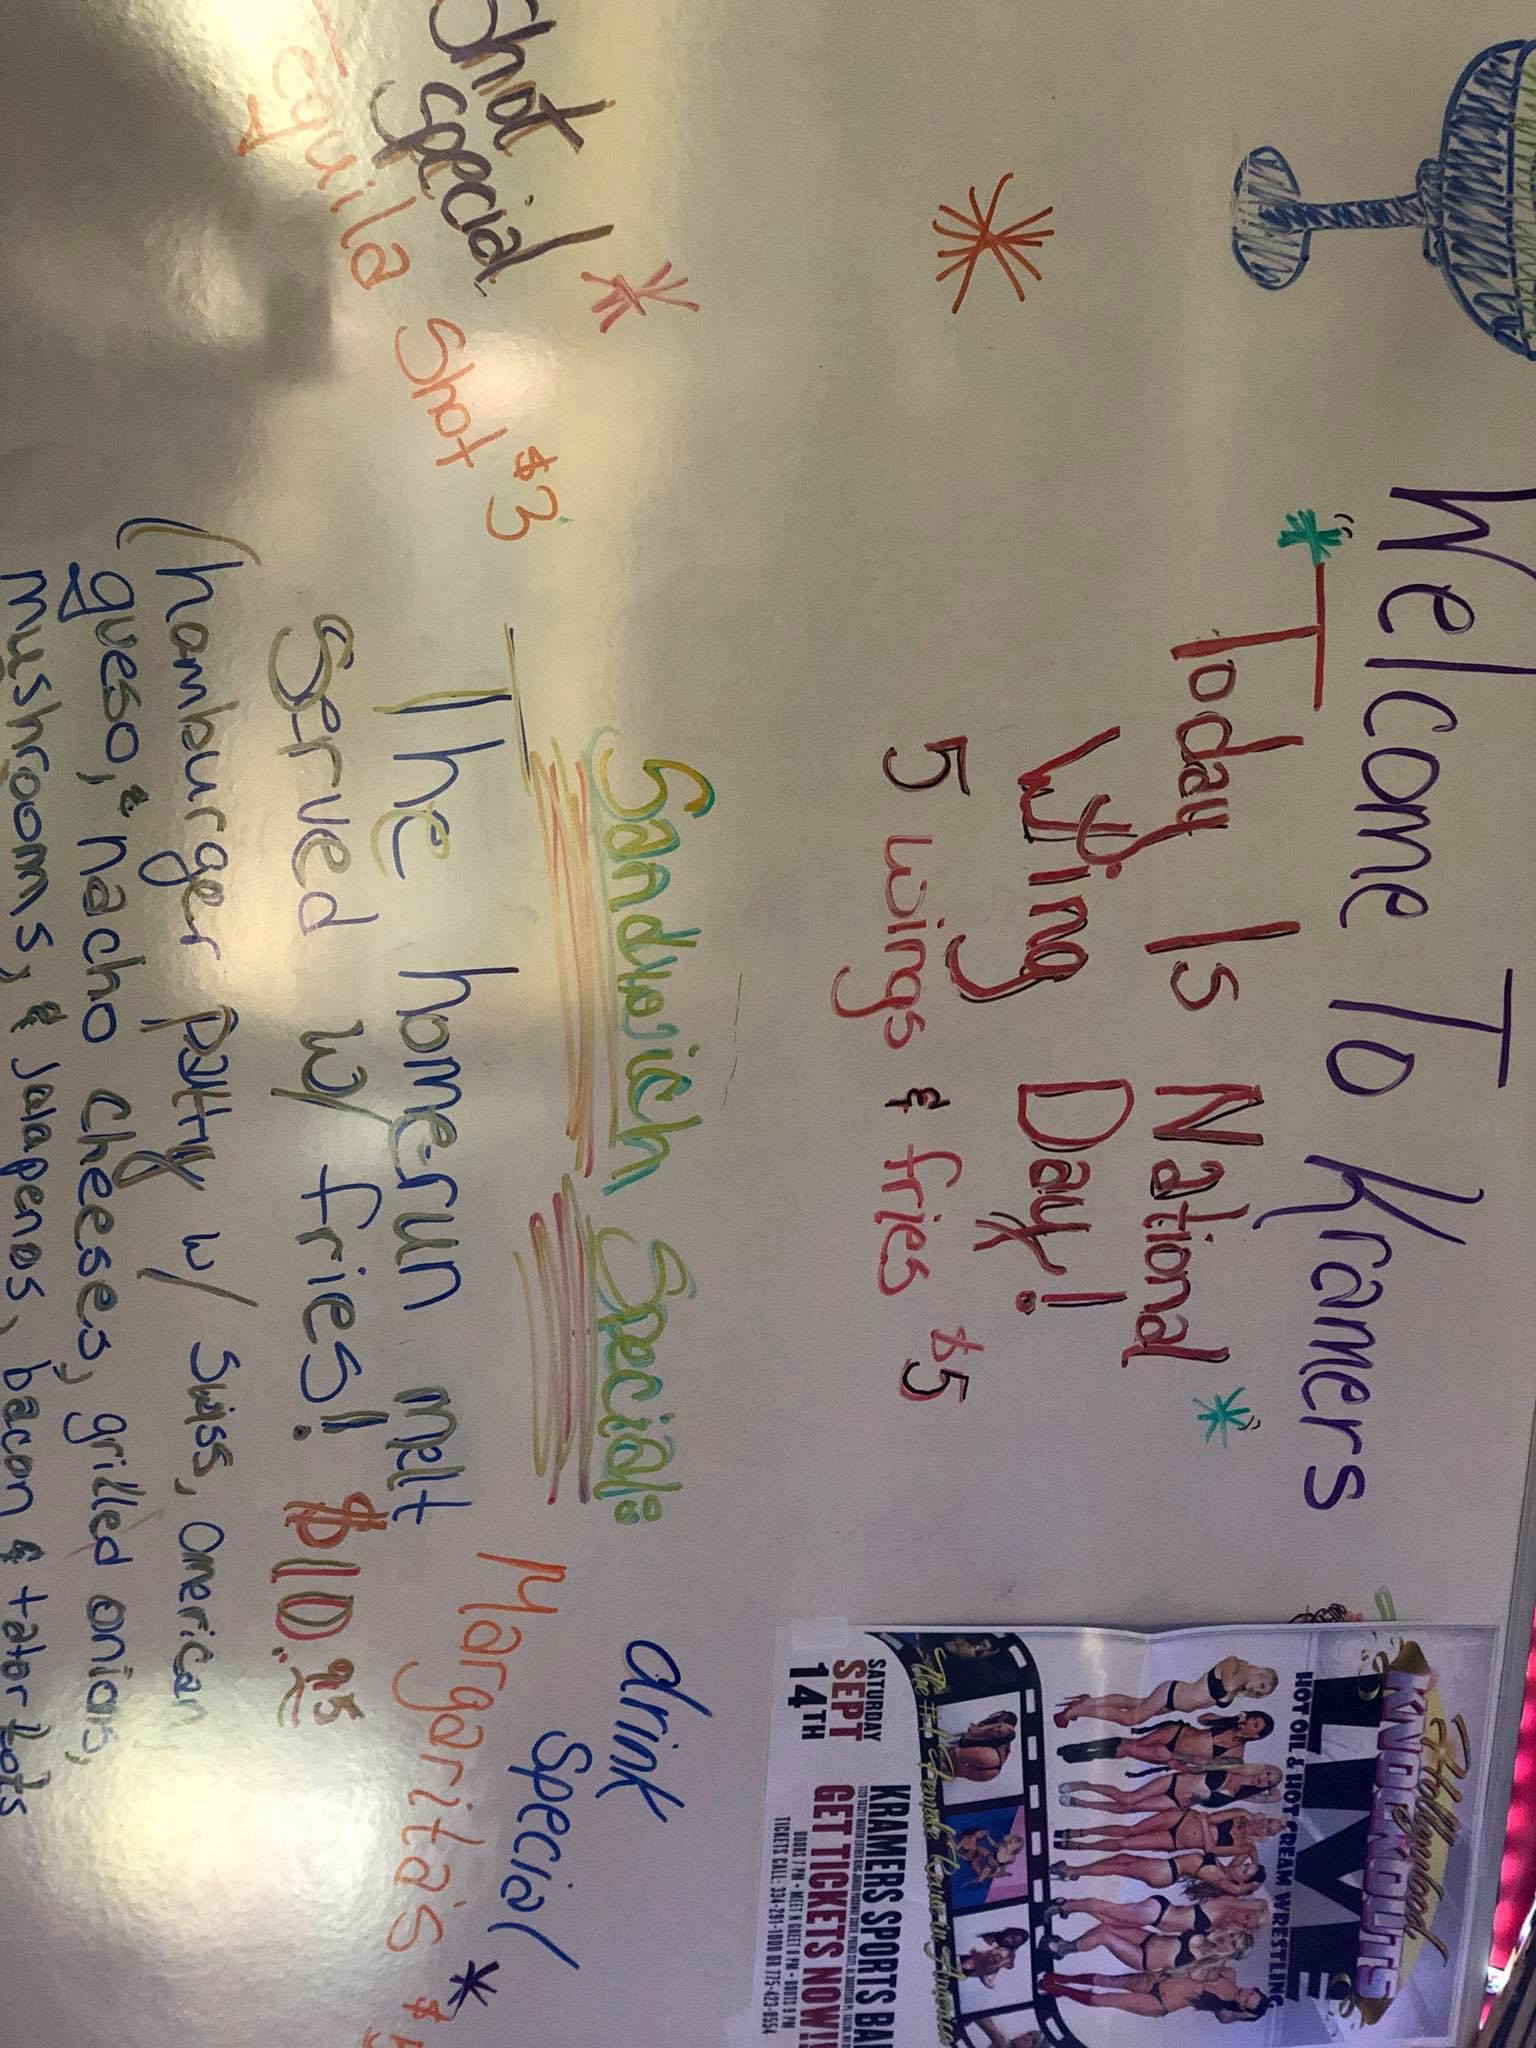 Welcome To Kramers
Today Is National
Wing Day!
5 wings & fries $5
Shot
special
Tequila shot $3
Sandwich Special:
The home-run melt
Served w/ fries! $10.95
(hamburger patty w/ swiss, american
queso, & nacho cheeses, grilled onions,
mushrooms, & jalapenos, bacon & tator tots
drink
special
Margarita's $
Hollywood
KNOCKOUTS
LIVE
HOT OIL & HOT CREAM WRESTLING
The #1 Female Revue in America
SATURDAY
SEPT
14TH
KRAMERS SPORTS BA
GET TICKETS NOW!
DOORS 7 PM - MEET N GREET 8 PM - BOUTS 9 PM
TICKETS CALL: 334-291-1006 OR 775-423-8554